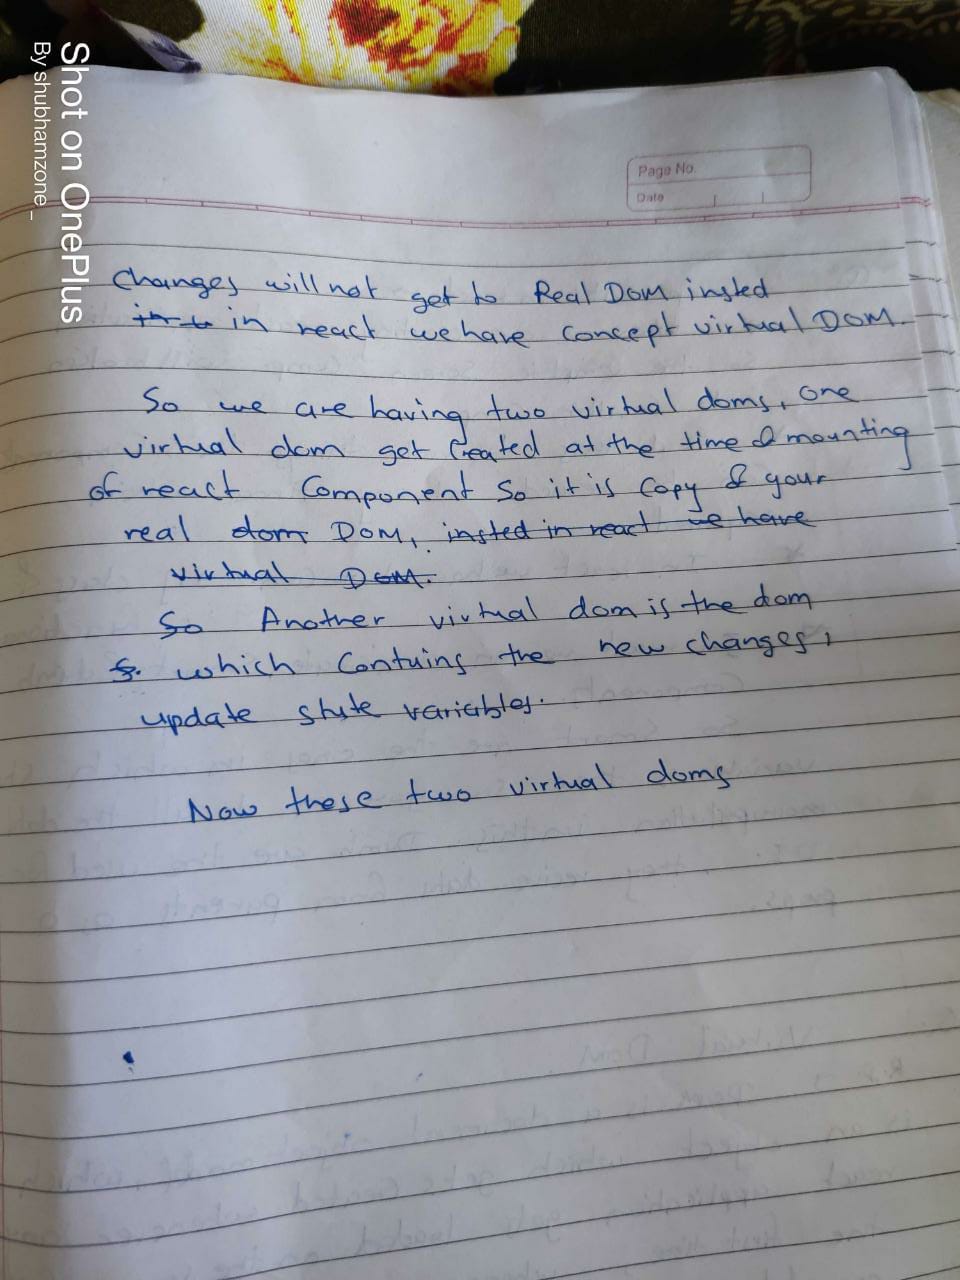 Shot on OnePlus
By shubhamzone -
Page No.
Date
Changes will not get to Real DOM insted
in react we have concept virtual DOM.
So we are having two virtual doms, one
virtual dom get Created at the time of mounting
of react Component So it is Copy of your
real dom DOM, insted in react we have
virtual DOM.
So Another virtual dom is the dom
which Contains the new changes,
update state variables.
Now these two virtual doms